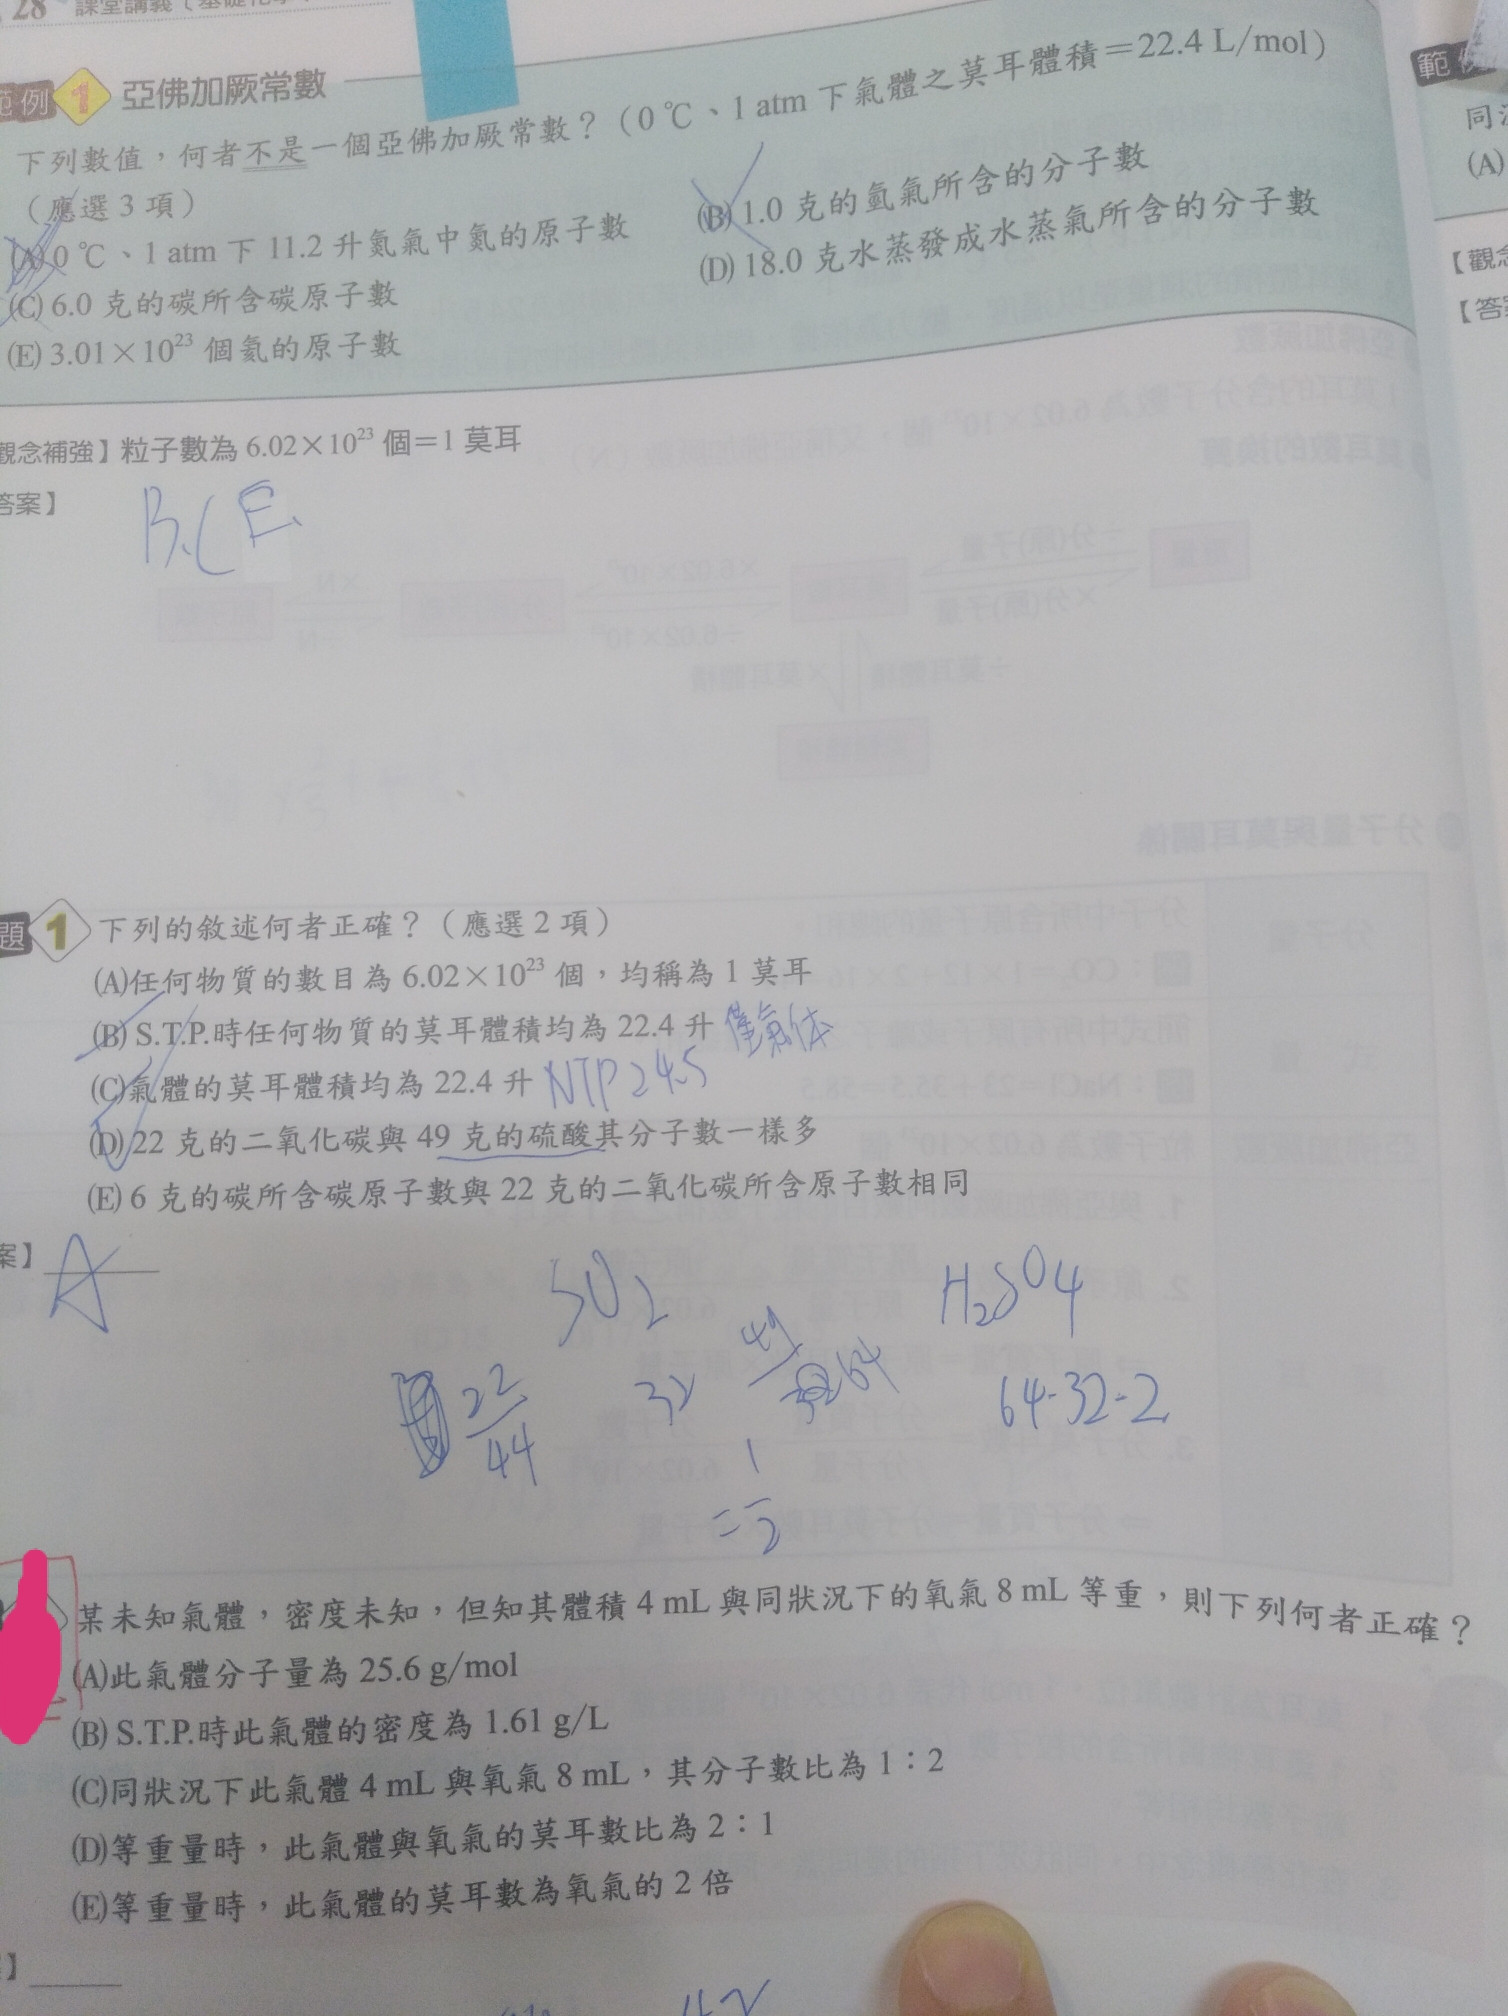 28 課堂講義
範例 1 亞佛加厥常數
下列數值，何者不是一個亞佛加厥常數？（0 ℃、1 atm 下氣體之莫耳體積＝22.4 L/mol）
（應選 3 項）
(A) 0 ℃、1 atm 下 11.2 升氮氣中氮的原子數
(B) 1.0 克的氫氣所含的分子數
(C) 6.0 克的碳所含碳原子數
(D) 18.0 克水蒸發成水蒸氣所含的分子數
(E) 3.01×10²³ 個氦的原子數
觀念補強】粒子數為 6.02×10²³ 個＝1 莫耳
答案】
B.C E.
題 1 下列的敘述何者正確？（應選 2 項）
(A)任何物質的數目為 6.02×10²³ 個，均稱為 1 莫耳
(B) S.T.P.時任何物質的莫耳體積均為 22.4 升 僅氣体
(C)氣體的莫耳體積均為 22.4 升 NTP 24.5
(D) 22 克的二氧化碳與 49 克的硫酸其分子數一樣多
(E) 6 克的碳所含碳原子數與 22 克的二氧化碳所含原子數相同
案】 A
SO2 H2SO4
22/44 32 49/64 64-32-2
=1/2
某未知氣體，密度未知，但知其體積 4 mL 與同狀況下的氧氣 8 mL 等重，則下列何者正確？
(A)此氣體分子量為 25.6 g/mol
(B) S.T.P.時此氣體的密度為 1.61 g/L
(C)同狀況下此氣體 4 mL 與氧氣 8 mL，其分子數比為 1：2
(D)等重量時，此氣體與氧氣的莫耳數比為 2：1
(E)等重量時，此氣體的莫耳數為氧氣的 2 倍
】
範
同
(A)
【觀念
【答